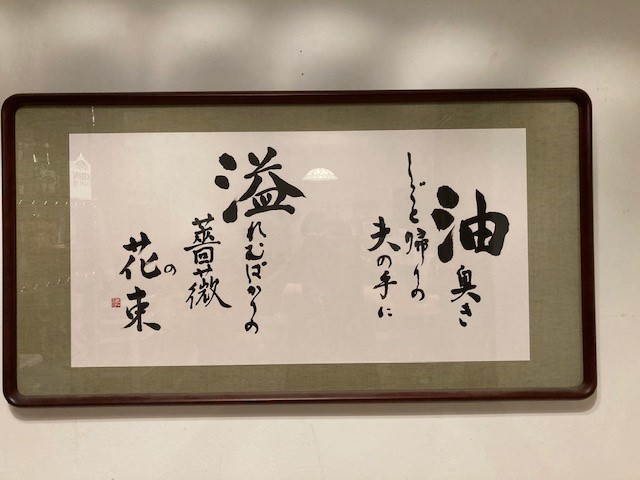 油臭き
しごと帰りの
夫の手に
溢れむばかりの
薔薇の
花束